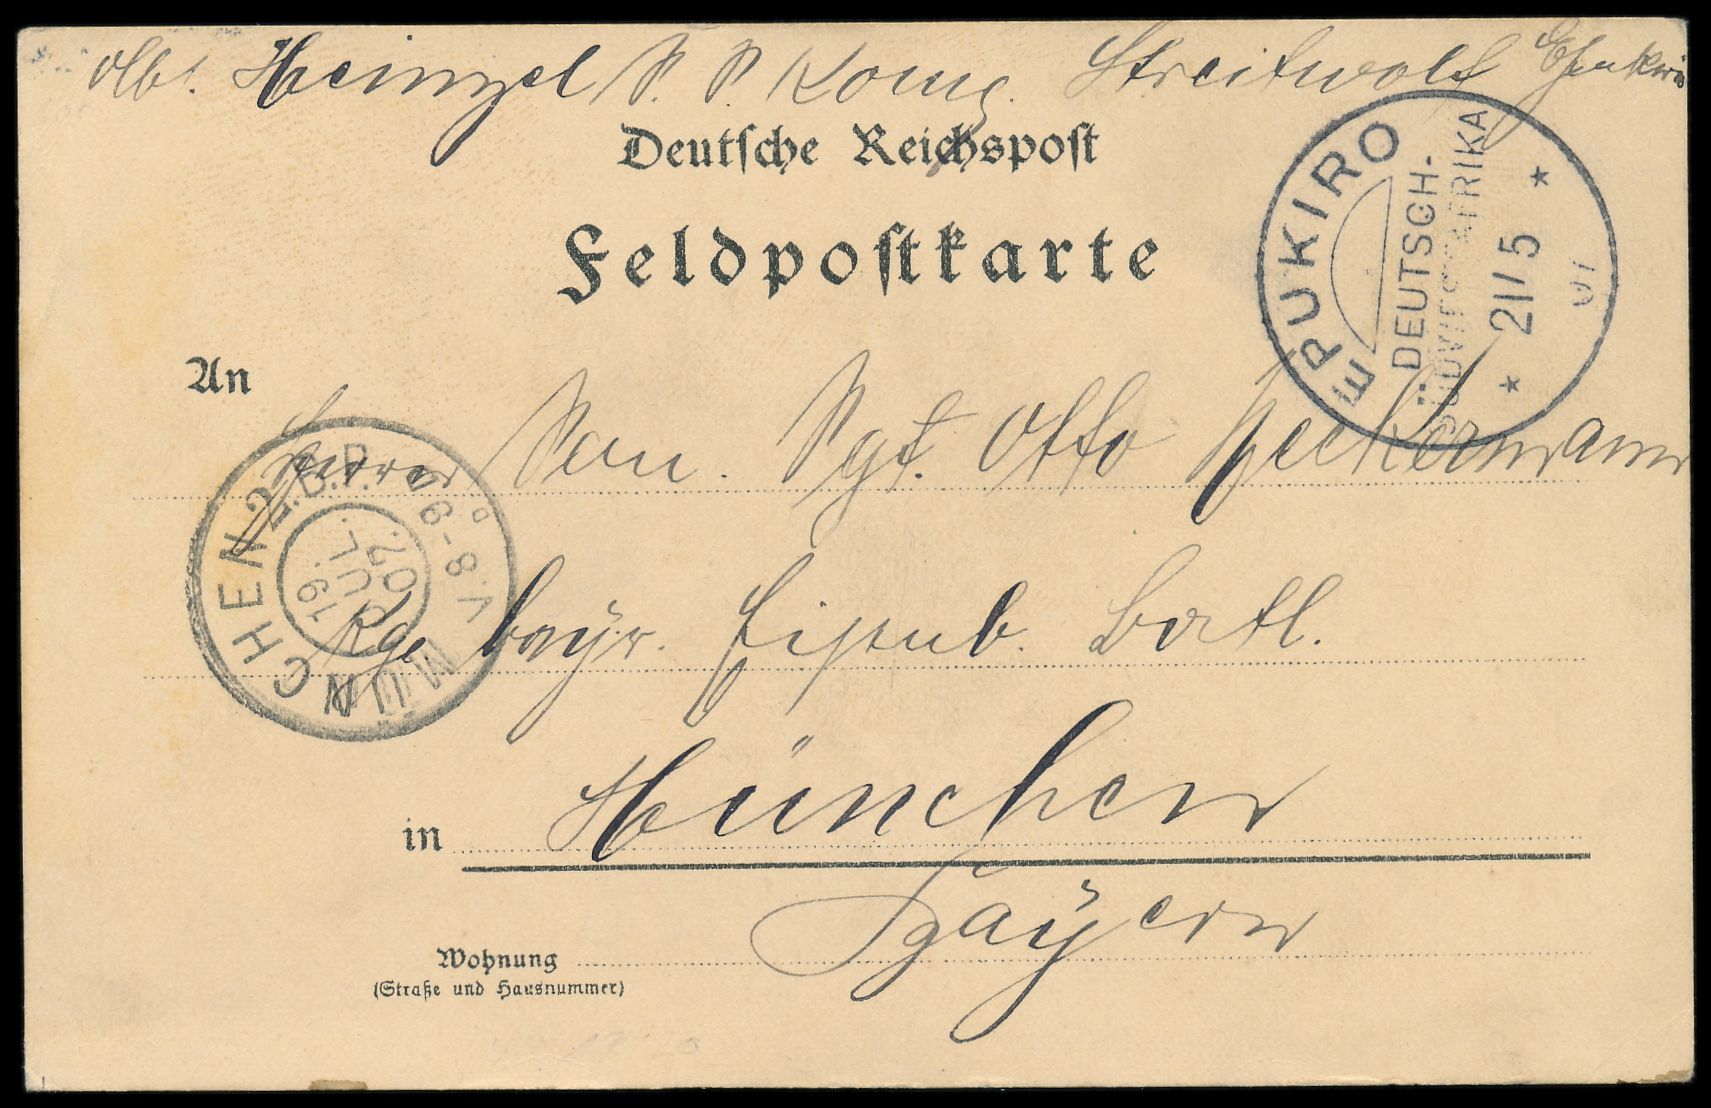 Abs. Heinzel P. P. König. Streitwolf Epukiro
Deutsche Reichspost
Feldpostkarte
EPUKIRO
DEUTSCH-
SÜDWESTAFRIKA
* 21/5 *
07
An
Herrn San. Sgt. Otto Heckermann
MÜNCHEN 2. B.P.
19
JUL.
07.
V. 8-9
Kgl. bayr. Eisenb. Batl.
in München
Bayern
Wohnung
(Straße und Hausnummer)